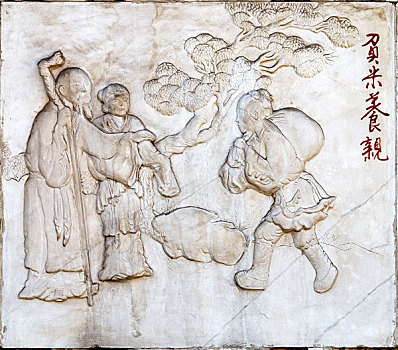 負米養親